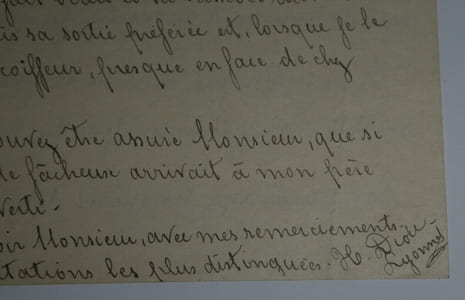 is sa sortie préférée est, lorsque je le
coiffeur, presque en face de chez
ouvez être assuré Monsieur, que si
de fâcheux arrivait à mon frère
verti.
oir Monsieur, avec mes remerciements,
tations les plus distinguées. H.